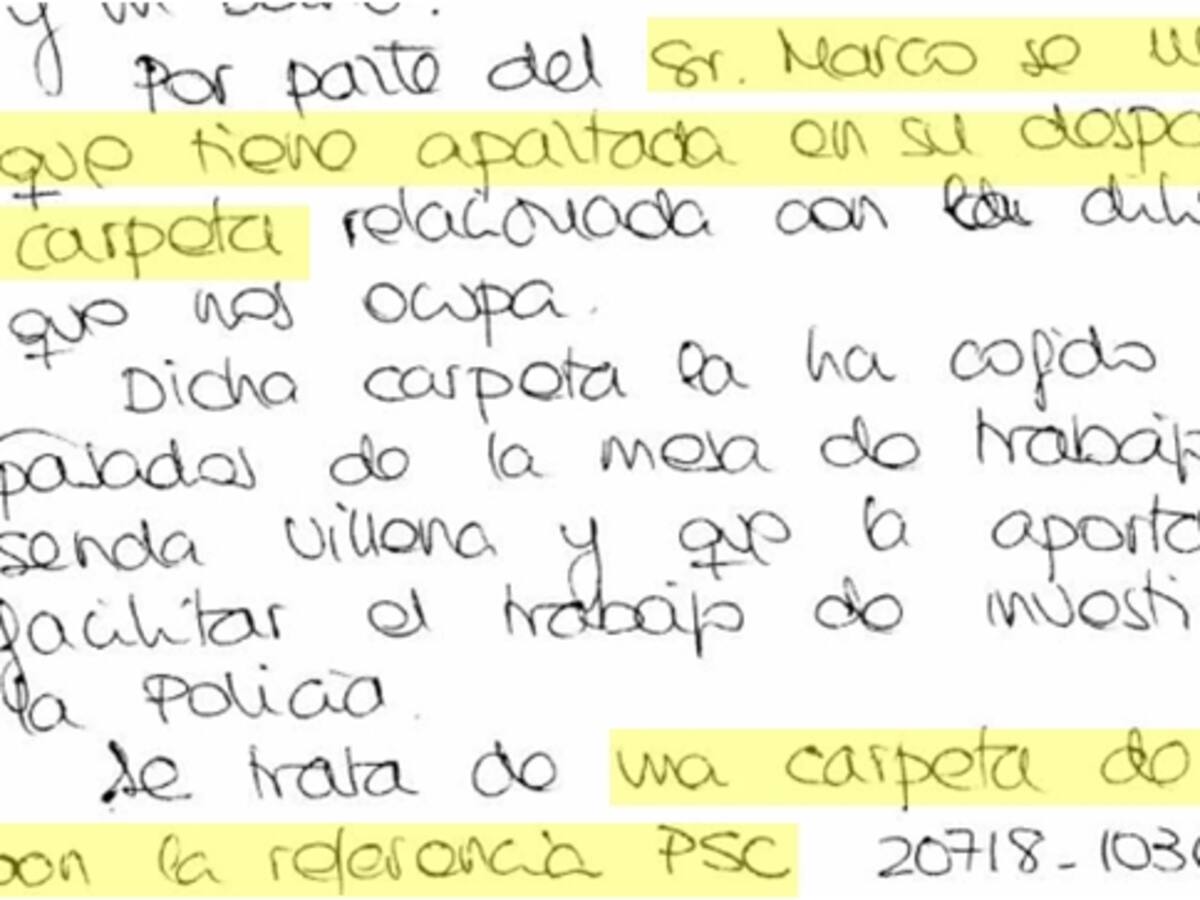 Por parte del Sr. Marco se
que tiene apartada en su despa
carpeta relacionada con
que nos ocupa.
Dicha carpeta la ha cogido
pasados de la mesa de trabaj
senda Villena y que la aporta
facilitar el trabajo de investi
la Policía.
Se trata de una carpeta de
con la referencia PSC 20718-103